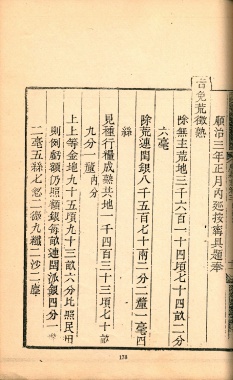 順治三年正月內巡按寗具題奉
旨免荒徵熟
除無主荒地三千六百一十四頃七十四畝二分
六毫
除荒連閏銀八千五百七十兩二分二釐一毫四
絲
見種行糧成熟共地一千四百三十三頃七十畝
九分一釐內分
上上等金地九十五頃九十三畝六分比照民田
則例虧額仍照額銀每畝連閏派銀四分一
二毫五絲七忽二微九纖二沙二塵
158